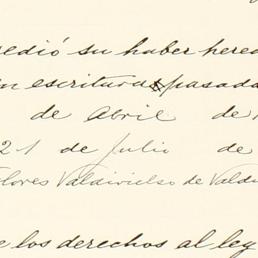 edió su haber here
n escrituras pasada
de abril de
21 de Julio de
lores Valdivielso de Valdi
e los derechos al leg